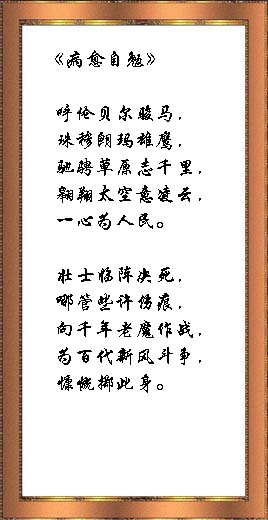 《病愈自勉》
呼伦贝尔骏马，
珠穆朗玛雄鹰，
驰骋草原志千里，
翱翔太空意凌云，
一心为人民。
壮士临阵决死，
哪管些许伤痕，
向千年老魔作战，
为百代新风斗争，
慷慨掷此身。